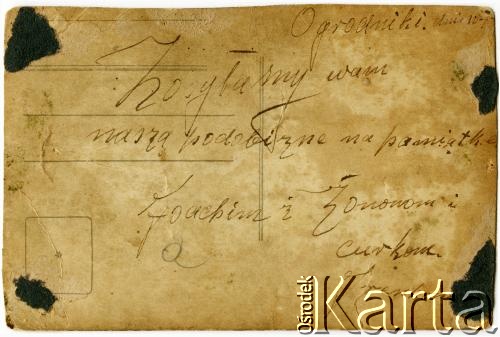 Ogrodniki. dnia 10
Zosyłamy wam
naszą podobizne na pamiątke
Joachim z Żonom i
curkom
a
Ośrodek
Karta